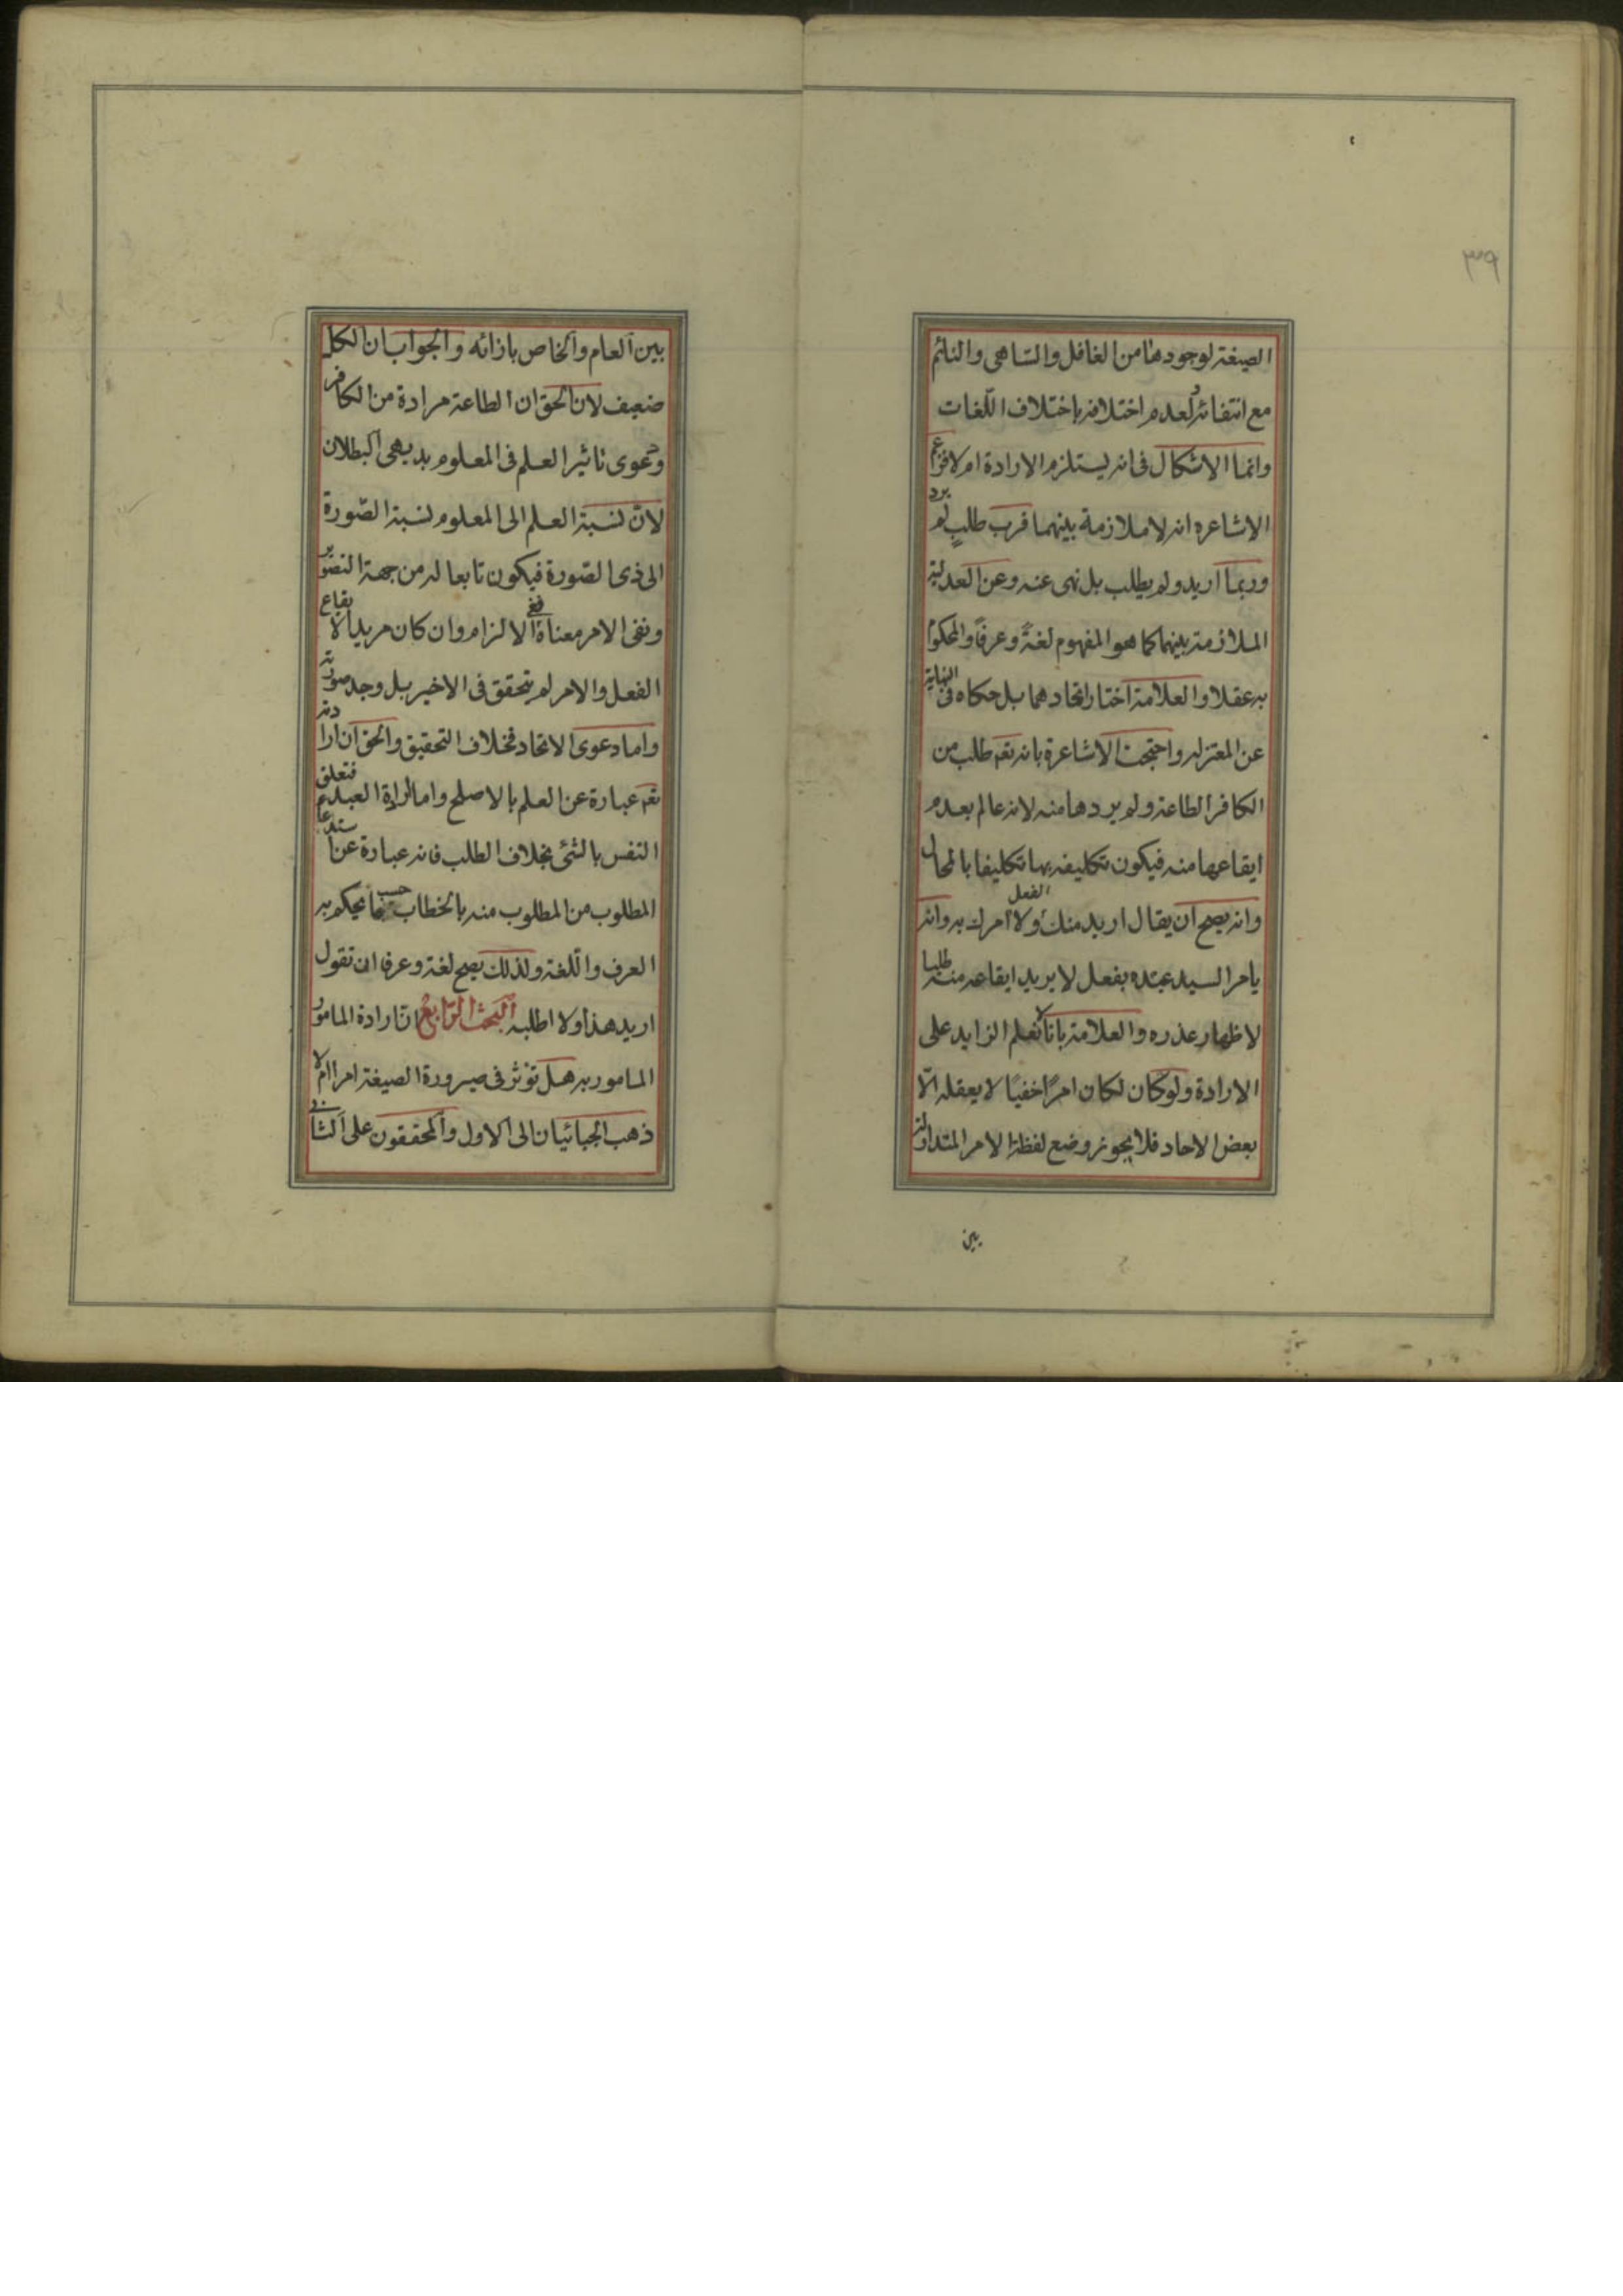 ٣٩
الصيغة لوجودها من الغافل والساهى والنائم
مع انتفائه ولعدم اختلافه باختلاف اللّغات
وانما الاشكال فى انه يستلزم الارادة ام لا فزعم
الاشاعره انه لا ملازمة بينهما فرب طلبٍ لم يرد
وربما اريد ولم يطلب بل نهى عنه وعن العدلية
الملازمة بينهما كما هو المفهوم لغةً وعرفاً والمحكوم
به عقلا والعلامة اختار اتحادهما بل حكاه فى النهاية
عن المعتزله واحتجت الاشاعرة بانه تعم طلب من
الكافر الطاعة ولم يردها منه لانه عالم بعدم
ايقاعها منه فيكون تكليفه بها تكليفا بالمحال
وانه يصح ان يقال اريد منك الفعل ولا آمرك به وانه
يامر السيد عبده بفعل لا يريد ايقاعه منه طلبا
لاظهار عذره والعلامة بانا لا نعلم الزايد على
الارادة ولو كان لكان امرًا خفيًا لا يعقله الّا
بعض الاحاد فلا يجوز وضع لفظة الامر المتداولة
بين
بين العام والخاص بازائه والجواب ان الكل
ضعيف لان الحق ان الطاعة مرادة من الكافر
ودعوى تاثير العلم فى المعلوم بديهى البطلان
لانّ نسبة العلم الى المعلوم نسبة الصّورة
الى ذى الصّورة فيكون تابعا له من جهة التصوير
ونفى الامر معناه نفى الالزام وان كان مريدا لايقاع
الفعل والامر لم يتحقق فى الاخير بل وجد صورته
واما دعوى الاتحاد فخلاف التحقيق والحق ان ارادته
تعم عبارة عن العلم بالاصلح واما ارادة العبد فتعلق
النفس بالشئ بخلاف الطلب فانه عبارة عن استدعاء
المطلوب من المطلوب منه بالخطاب حسبما يحكم به
العرف واللّغة ولذلك يصح لغة وعرفا ان تقول
اريد هذا ولا اطلبه البحث الرّابع انّ ارادة المامور
المامور به هل تؤثر فى صيرورة الصيغة امرا ام لا
ذهب الجبائيان الى الاول والمحققون على الثانى